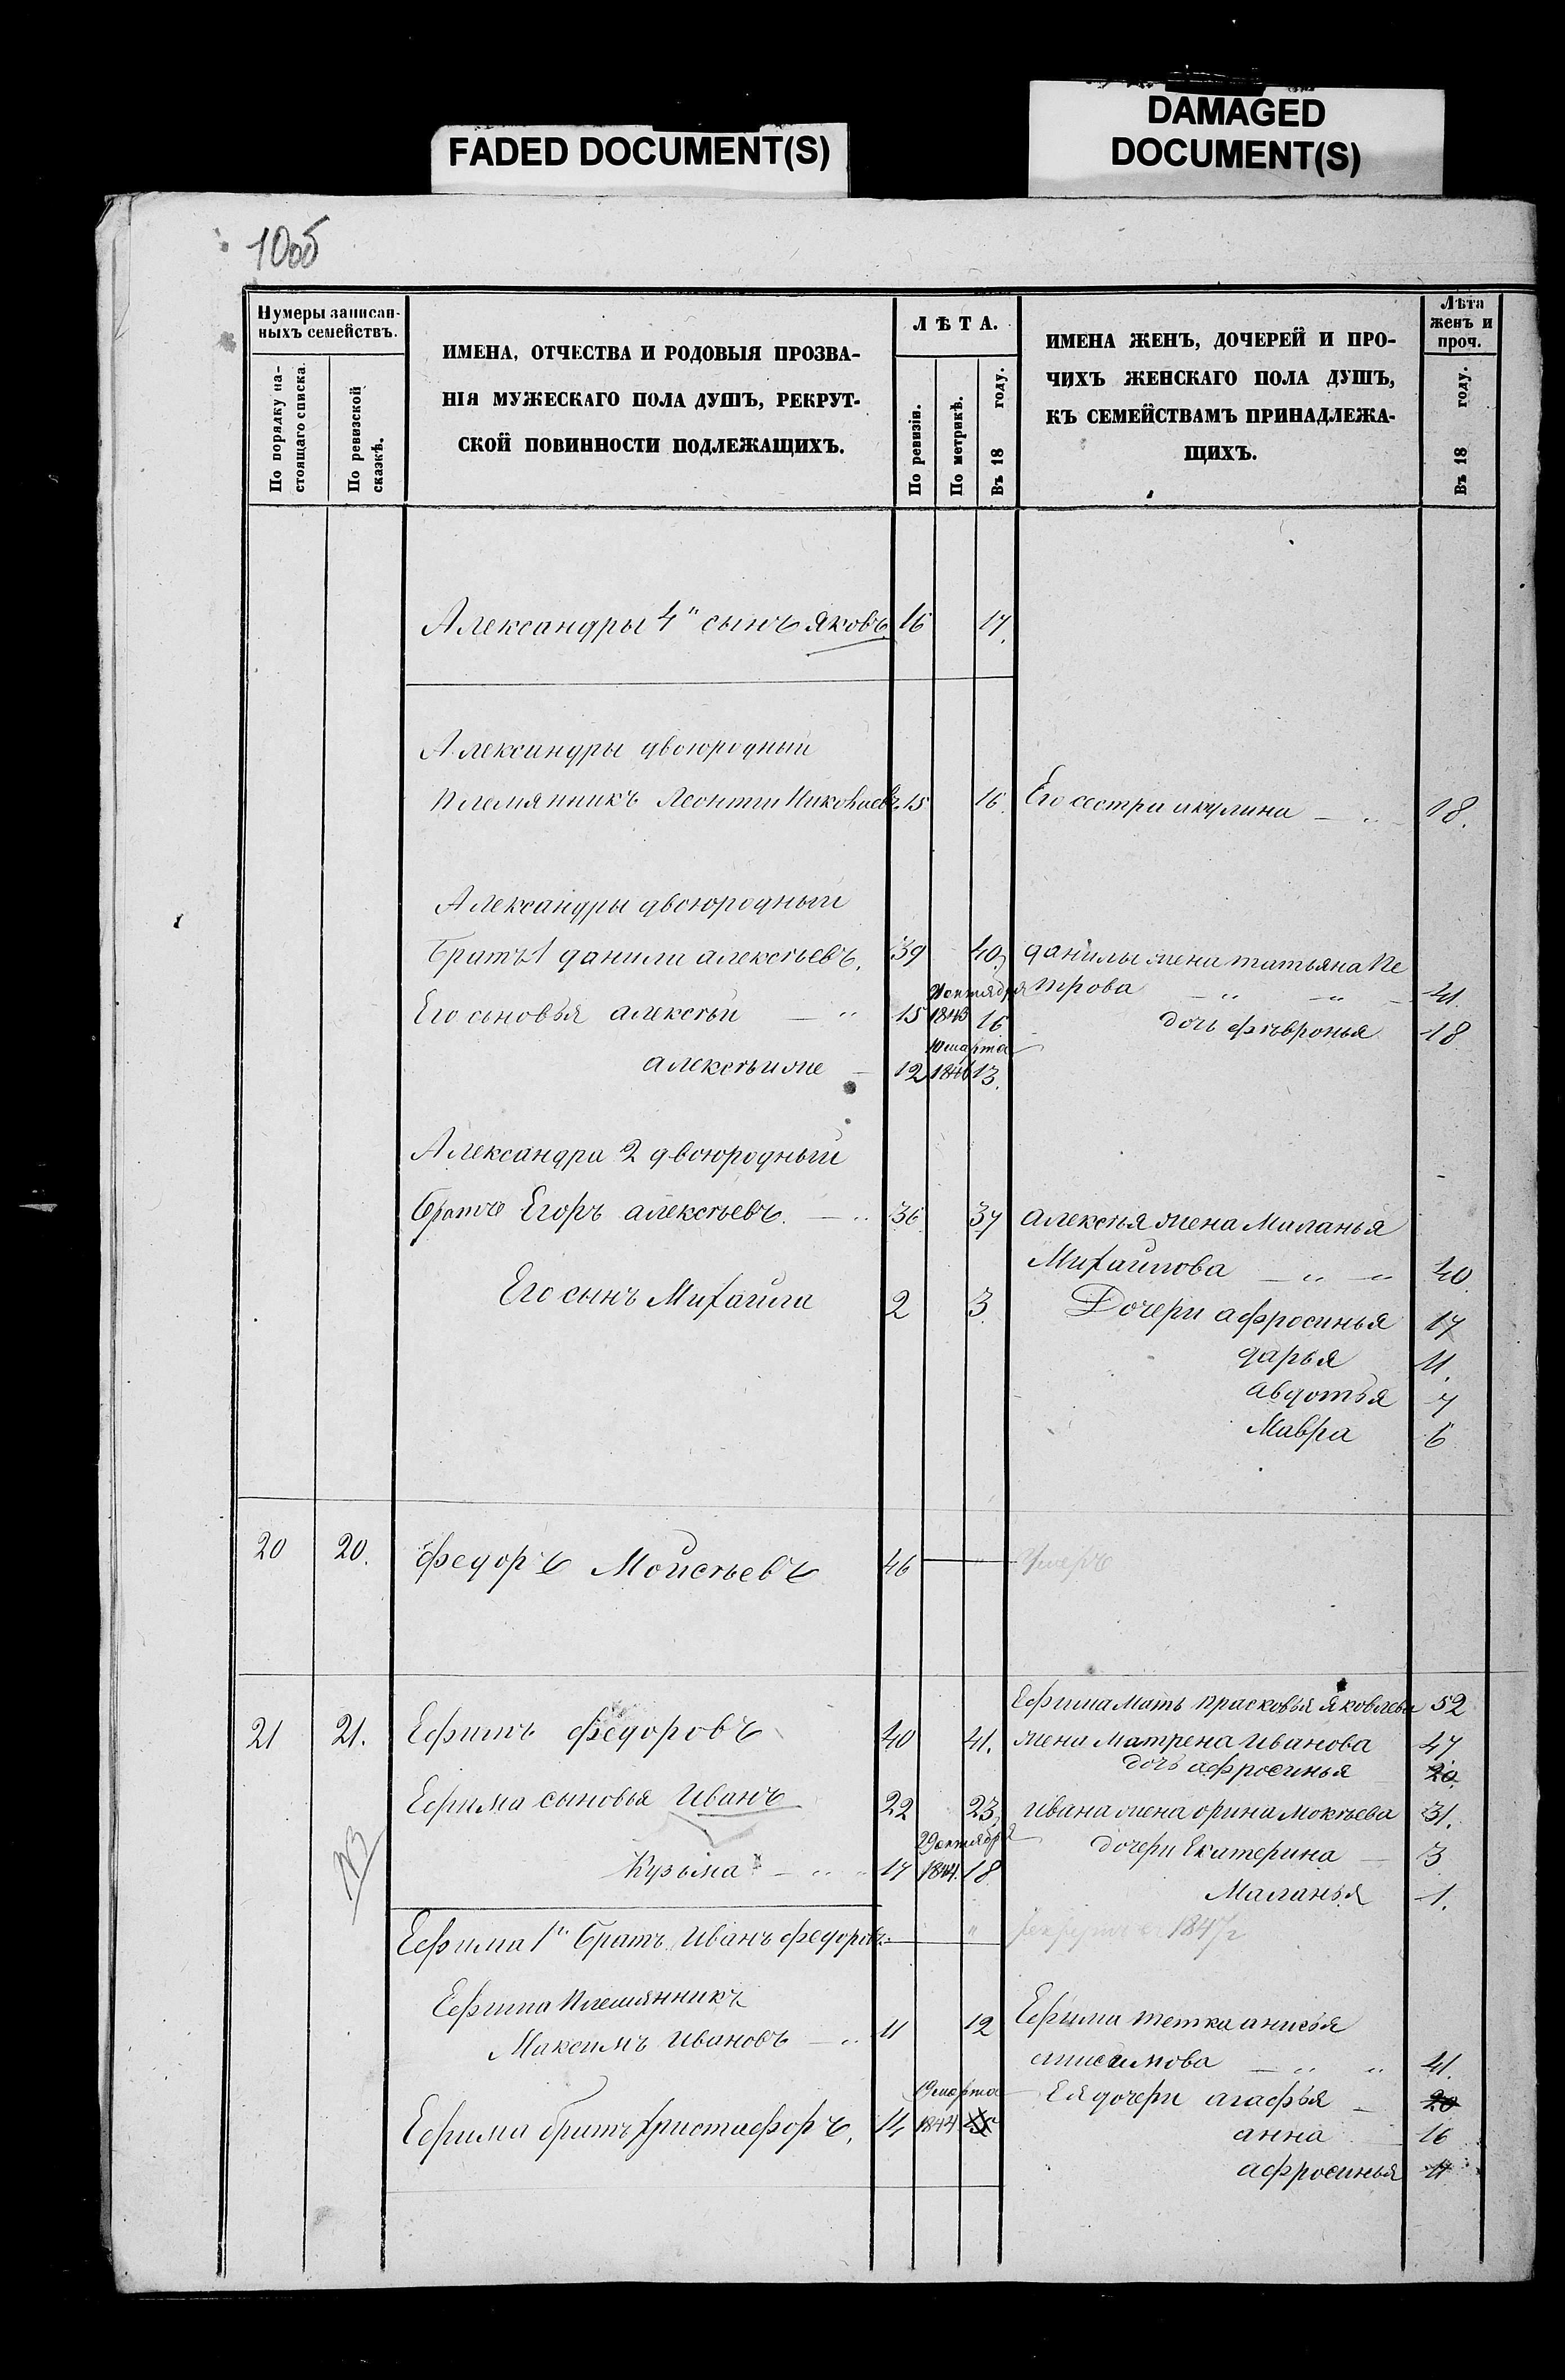 FADED DOCUMENT(S)
DAMAGED
DOCUMENT(S)
10об
Нумеры записан-
ныхъ семействъ.
По порядку на-
стоящаго списка.
По ревизской
сказкѣ.
ИМЕНА, ОТЧЕСТВА И РОДОВЫЯ ПРОЗВА-
НІЯ МУЖЕСКАГО ПОЛА ДУШЪ, РЕКРУТ-
СКОЙ ПОВИННОСТИ ПОДЛЕЖАЩИХЪ.
ЛѢТА.
По ревизіи.
По метрикѣ.
Въ 18 году.
ИМЕНА ЖЕНЪ, ДОЧЕРЕЙ И ПРО-
ЧИХЪ ЖЕНСКАГО ПОЛА ДУШЪ,
КЪ СЕМЕЙСТВАМЪ ПРИНАДЛЕЖА-
ЩИХЪ.
Лѣта
женъ и
проч.
Въ 18 году.
Александры 4" сынъ Яковъ 16 17.
Александры двоюродный
племянникъ Леонтій Николаевъ. 15 16. Его сестра акулина — „ — 18.
Александры двоюродный
братъ 1 данила алексѣевъ. 39 40. данилы жена татьяна Пе
трова — „ — „ — 41.
Его сыновья алексѣй — „ 15 октября 1843 16 дочь фѣвронья 18
алексѣйже — 12 10 марта 1846 13.
Александра 2 двоюродный
братъ Егоръ алексѣевъ. — „ 36 37 алексѣя жена Маланья
Михайлова — „ — „ 40.
Его сынъ Михайла 2 3. Дочери афросинья 17
дарья 11.
авдотья 7
Мавра 6
20 20. федоръ Моисѣевъ 46 — Умеръ
Ефима мать прасковья Яковлева 52
21 21. Ефимъ федоровъ 40 41. жена матрена иванова 47
дочь афросинья 20.
Ефима сыновья Иванъ 22 23. ивана жена орина Мокѣева 31.
Кузьма — „ „ 17 29 октября 1844. 18 дочери Екатерина — 3
Маланья 1.
Ефима 1й братъ Иванъ федоровъ. — „ 1847г
Ефима племянникъ
Максимъ Ивановъ — „ 11 12 Ефима тетка анисья
анисимова — „ „ 41.
Ефима братъ христафоръ. 14 19 марта 1844 15 Ея дочери агафья — 20
анна 16
афросинья 11